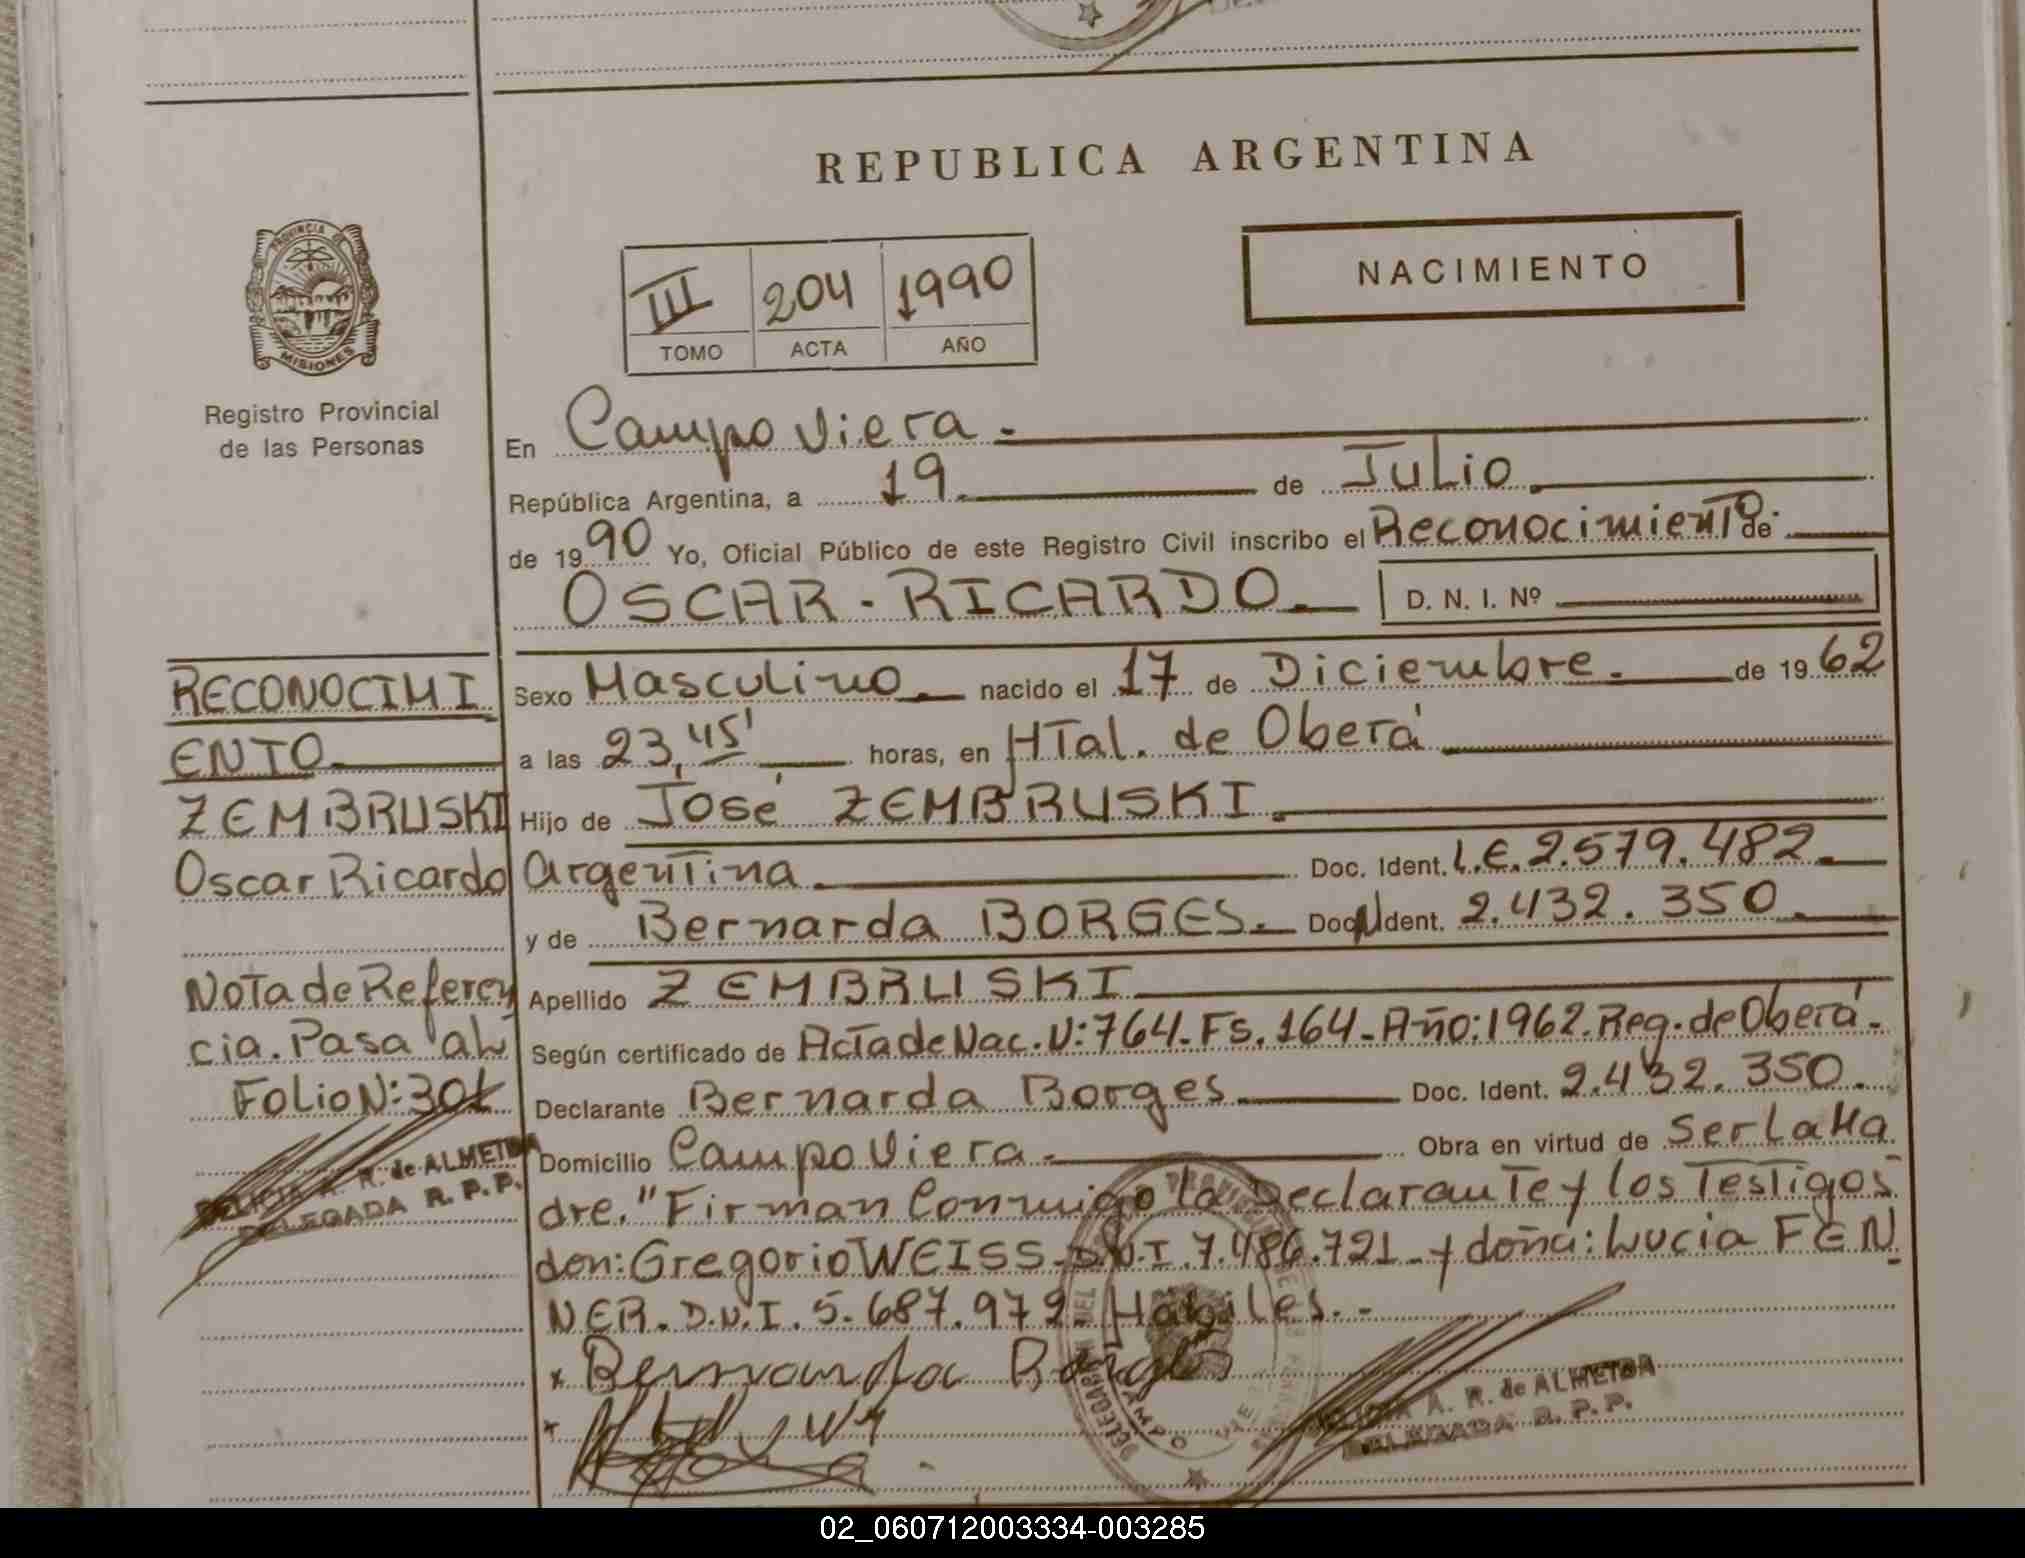 REPUBLICA ARGENTINA
PROVINCIA DE
MISIONES
Registro Provincial
de las Personas
III 204 1990
TOMO ACTA AÑO
NACIMIENTO
En Campo Viera.-
República Argentina, a 19 de Julio
de 1990 Yo, Oficial Público de este Registro Civil inscribo el Reconocimiento de:
OSCAR - RICARDO. D. N. I. Nº
Sexo Masculino. nacido el 17 de Diciembre. de 1962
a las 23,45' horas, en HTal. de Oberá
Hijo de José ZEMBRUSKI.
Argentina Doc. Ident. L.E. 2.579.482.
y de Bernarda BORGES. Doc. Ident. 2.432.350.
Apellido ZEMBRUSKI
Según certificado de Acta de Nac. N: 764. Fs. 164. Año: 1962. Reg. de Oberá.
Declarante Bernarda Borges Doc. Ident. 2.432.350.
Domicilio Campo Viera. Obra en virtud de Ser La Ma
dre. "Firman Conmigo la Declarante y los Testigos
don: Gregorio WEISS. D.N.I. 7.486.721 - y doña: Lucia FEN
NER. D.N.I. 5.687.979 Hábiles.-
x Bernarda Borges
RECONOCIMI
ENTO
ZEMBRUSKI
Oscar Ricardo
Nota de Referen
cia. Pasa al
Folio N: 301
A. R. de ALMEIDA
DELEGADA R. P. P.
A. R. de ALMEIDA
DELEGADA R. P. P.
02_060712003334-003285